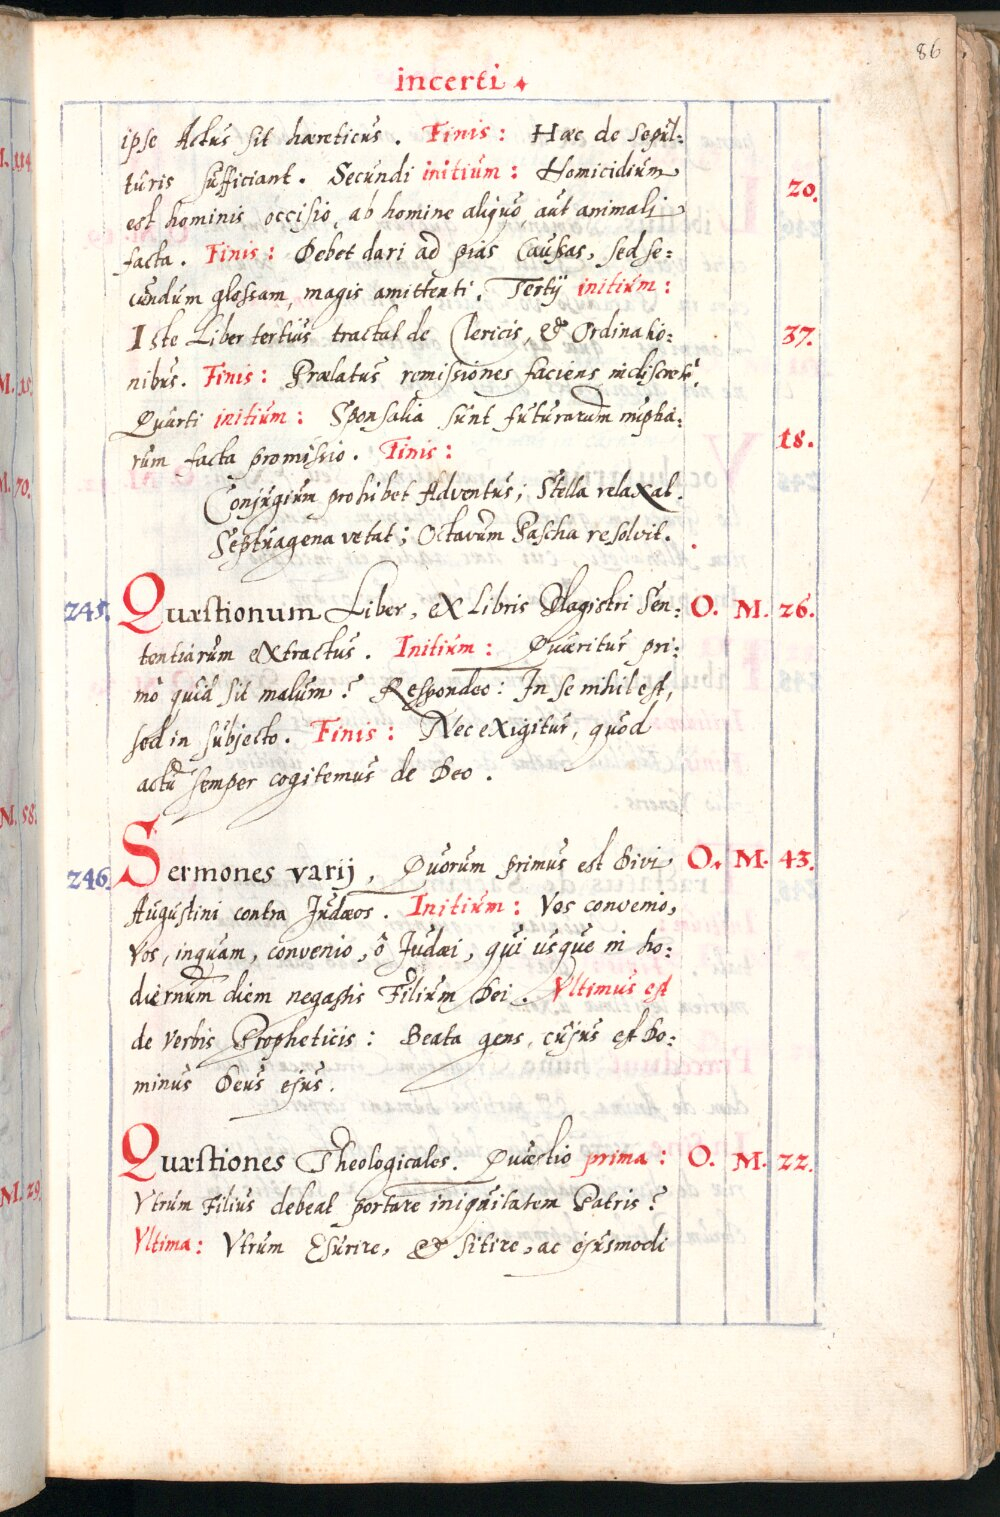 86
incerti.
ipse Actus sit hæreticus. Finis: Hæc de sepul-
turis sufficiant. Secundi initium: Homicidium
20.
est hominis occisio, ab homine aliquo aut animali
facta. Finis: Debet dari ad pias Caussas, sed se-
cundum glossam, magis amittenti. Tertij initium:
Iste Liber tertius tractat de Clericis, & Ordinatio- 37.
nibus. Finis: Prælatus remissiones faciens indiscretè.
Quarti initium: Sponsalia sunt futurarum nuptia- 18.
rum facta promissio. Finis:
Conjugium prohibet Adventus; Stella relaxat.
Septuagena vetat; Octavum Pascha resolvit.
245. Quæstionum Liber, ex Libris Magistri Sen- O. M. 26.
tentiarum extractus. Initium: Quæritur pri-
mò quid sit malum? Respondeo: In se nihil est,
sed in subjecto. Finis: Nec exigitur, quod
actu semper cogitemus de Deo.
246. Sermones varij, Quorum primus est Divi O. M. 43.
Augustini contra Judæos. Initium: Vos convenio,
Vos, inquam, convenio, ô Judæi, qui usque in ho-
diernum diem negastis Filium Dei. Ultimus est
de verbis Propheticis: Beata gens, cujus est Do-
minus Deus ejus.
Quæstiones Theologicales. Quæstio prima: O. M. 22.
Vtrum Filius debeat portare iniquitatem Patris?
Vltima: Vtrum Esurire, & sitire, ac ejusmodi
M. 114.
M. 15.
M. 70.
M. 58.
M. 29.